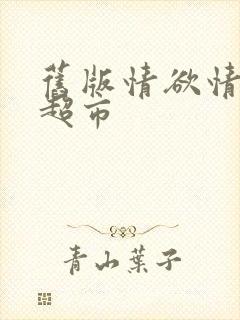 舊版情欲情
超市
青山葉子